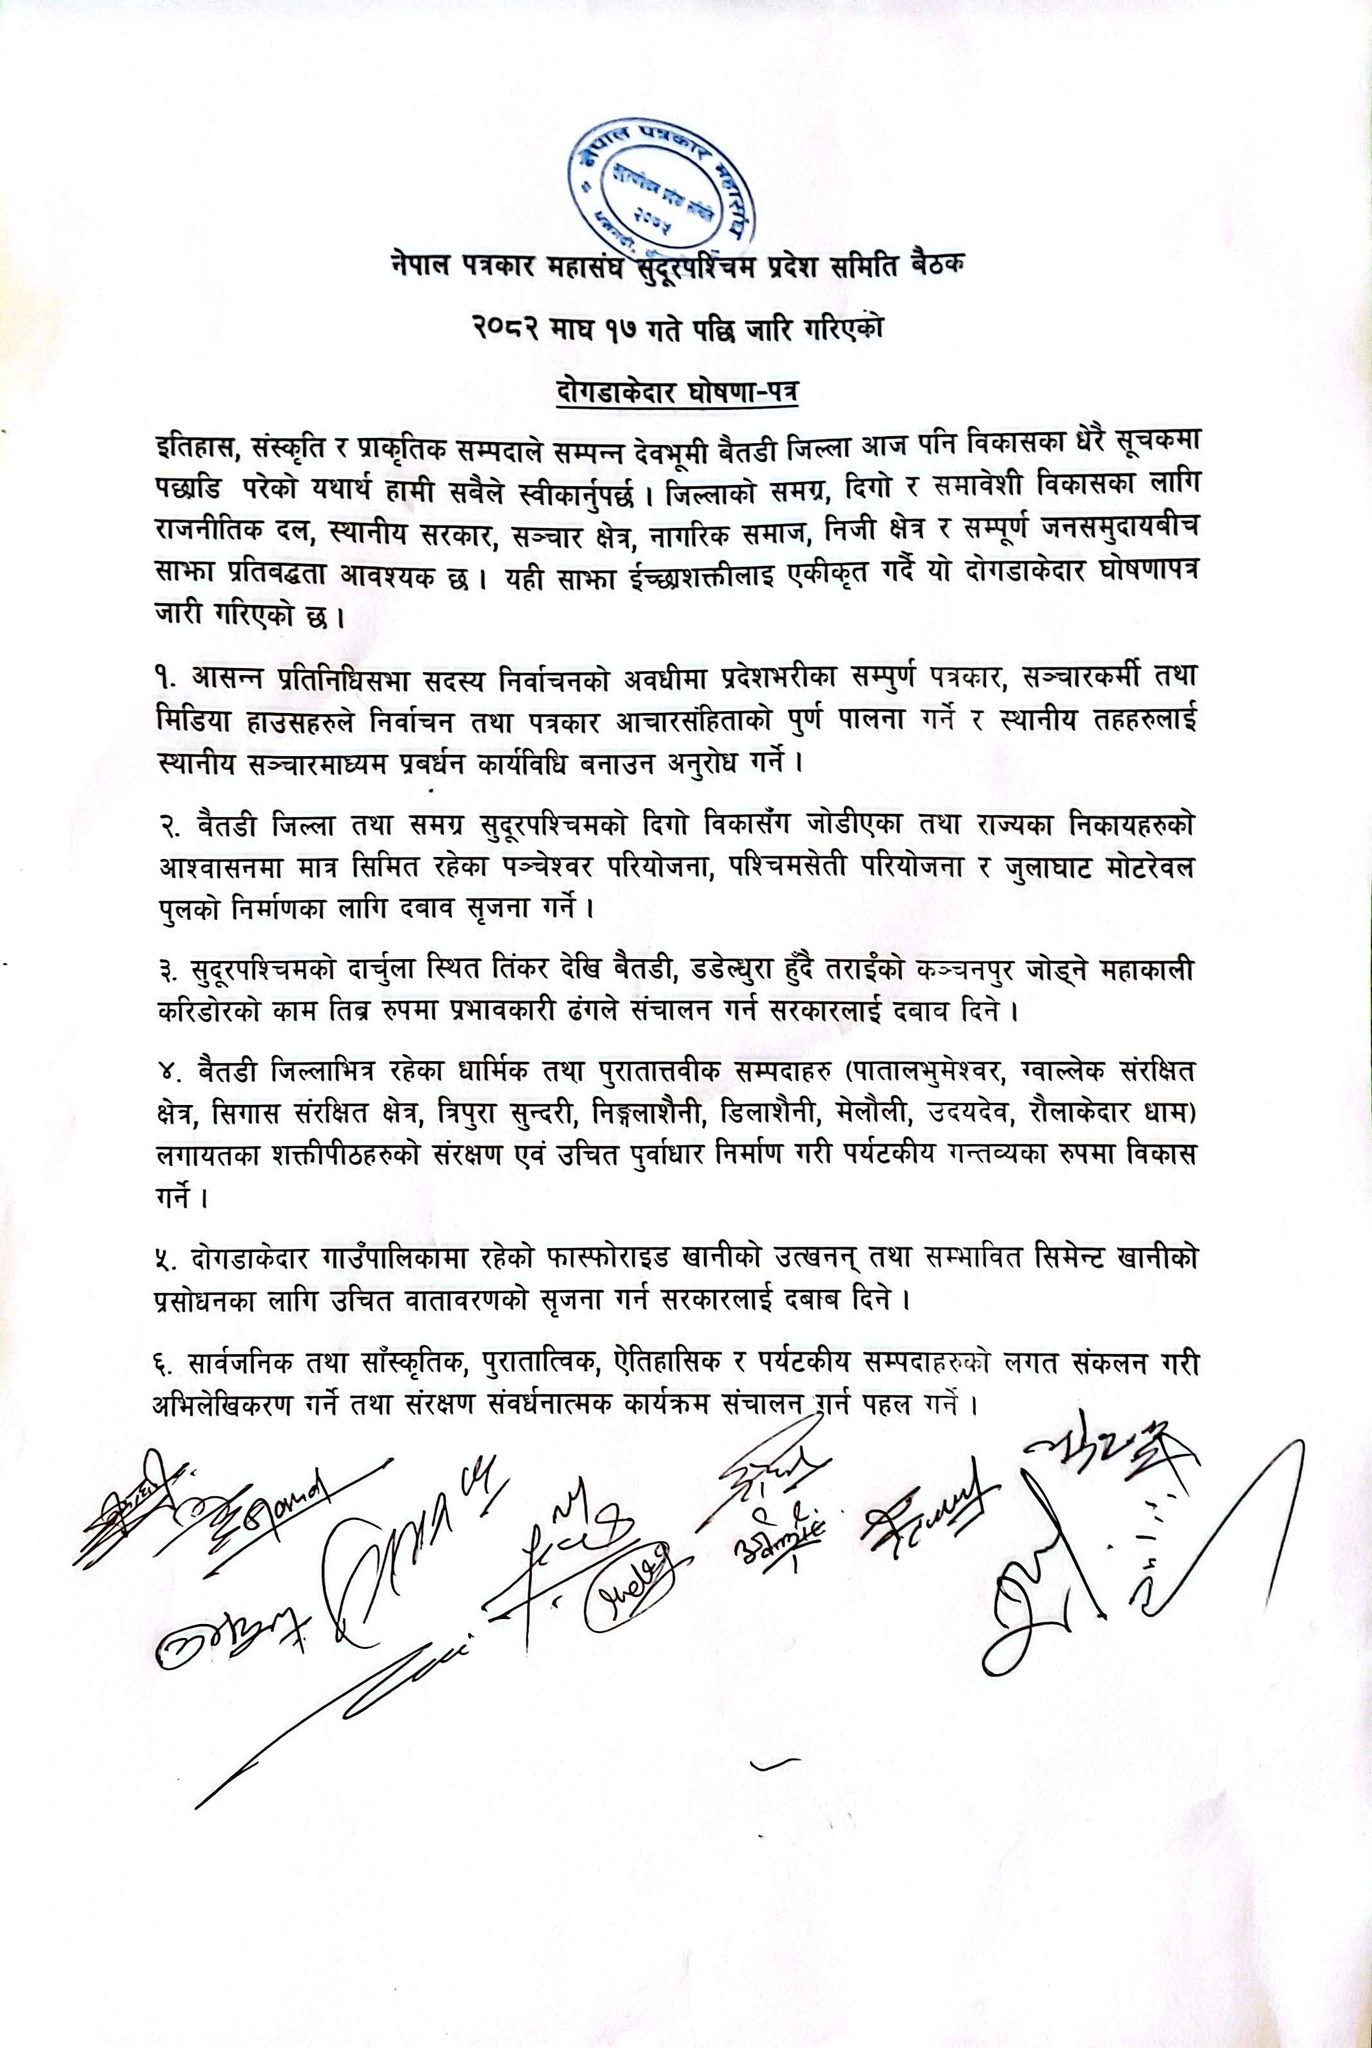 नेपाल पत्रकार महासंघ
सुदूरपश्चिम प्रदेश समिति
२०७५
नेपाल पत्रकार महासंघ सुदूरपश्चिम प्रदेश समिति बैठक
२०८२ माघ १७ गते पछि जारि गरिएको
दोगडाकेदार घोषणा-पत्र
इतिहास, संस्कृति र प्राकृतिक सम्पदाले सम्पन्न देवभूमी बैतडी जिल्ला आज पनि विकासका धेरै सूचकमा
पछाडि परेको यथार्थ हामी सबैले स्वीकार्नुपर्छ । जिल्लाको समग्र, दिगो र समावेशी विकासका लागि
राजनीतिक दल, स्थानीय सरकार, सञ्चार क्षेत्र, नागरिक समाज, निजी क्षेत्र र सम्पूर्ण जनसमुदायबीच
साझा प्रतिबद्धता आवश्यक छ । यही साझा ईच्छाशक्तीलाइ एकीकृत गर्दै यो दोगडाकेदार घोषणापत्र
जारी गरिएको छ ।
१. आसन्न प्रतिनिधिसभा सदस्य निर्वाचनको अवधीमा प्रदेशभरीका सम्पुर्ण पत्रकार, सञ्चारकर्मी तथा
मिडिया हाउसहरुले निर्वाचन तथा पत्रकार आचारसंहिताको पुर्ण पालना गर्ने र स्थानीय तहहरुलाई
स्थानीय सञ्चारमाध्यम प्रबर्धन कार्यविधि बनाउन अनुरोध गर्ने ।
२. बैतडी जिल्ला तथा समग्र सुदूरपश्चिमको दिगो विकासँग जोडीएका तथा राज्यका निकायहरुको
आश्वासनमा मात्र सिमित रहेका पञ्चेश्वर परियोजना, पश्चिमसेती परियोजना र जुलाघाट मोटरेवल
पुलको निर्माणका लागि दबाव सृजना गर्ने ।
३. सुदूरपश्चिमको दार्चुला स्थित तिंकर देखि बैतडी, डडेल्धुरा हुँदै तराईको कञ्चनपुर जोड्ने महाकाली
करिडोरको काम तिब्र रुपमा प्रभावकारी ढंगले संचालन गर्न सरकारलाई दबाव दिने ।
४. बैतडी जिल्लाभित्र रहेका धार्मिक तथा पुरातात्तवीक सम्पदाहरु (पातालभुमेश्वर, ग्वाल्लेक संरक्षित
क्षेत्र, सिगास संरक्षित क्षेत्र, त्रिपुरा सुन्दरी, निङ्गलाशैनी, डिलाशैनी, मेलौली, उदयदेव, रौलाकेदार धाम)
लगायतका शक्तीपीठहरुको संरक्षण एवं उचित पुर्वाधार निर्माण गरी पर्यटकीय गन्तव्यका रुपमा विकास
गर्ने ।
५. दोगडाकेदार गाउँपालिकामा रहेको फास्फोराइड खानीको उत्खनन् तथा सम्भावित सिमेन्ट खानीको
प्रसोधनका लागि उचित वातावरणको सृजना गर्न सरकारलाई दबाब दिने ।
६. सार्वजनिक तथा साँस्कृतिक, पुरातात्विक, ऐतिहासिक र पर्यटकीय सम्पदाहरुको लगत संकलन गरी
अभिलेखिकरण गर्ने तथा संरक्षण संवर्धनात्मक कार्यक्रम संचालन गर्न पहल गर्ने ।